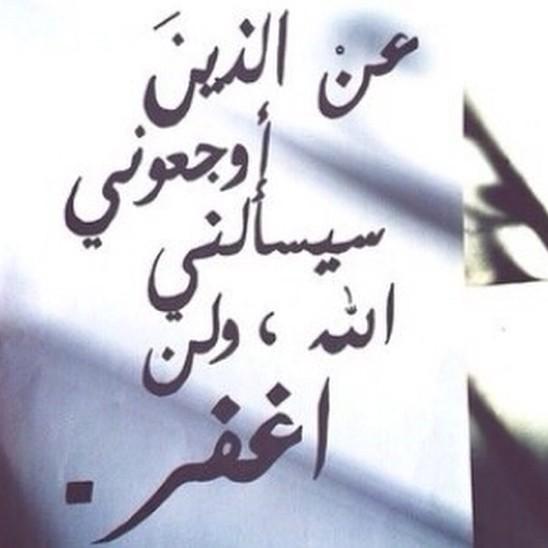 عنْ الذينَ
أوجعوني
سيسألني
الله ، ولن
اغفر .